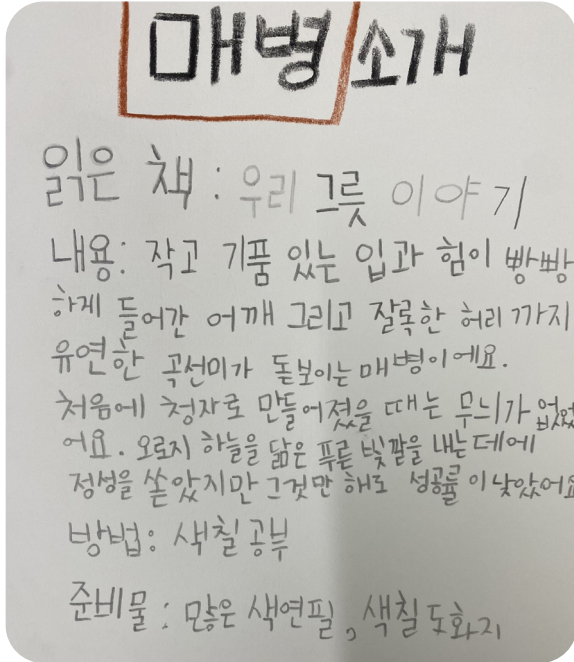 매병 소개
읽은 책 : 우리 그릇 이야기
내용: 작고 기품 있는 입과 힘이 빵빵
하게 들어간 어깨 그리고 잘록한 허리까지
유연한 곡선미가 돋보이는 매병이에요.
처음에 청자로 만들어졌을 때는 무늬가 없었
어요. 오로지 하늘을 닮은 푸른 빛깔을 내는데에
정성을 쏟았지만 그것만 해도 성공률이 낮았어요
방법: 색칠공부
준비물 : 많은 색연필, 색칠 도화지